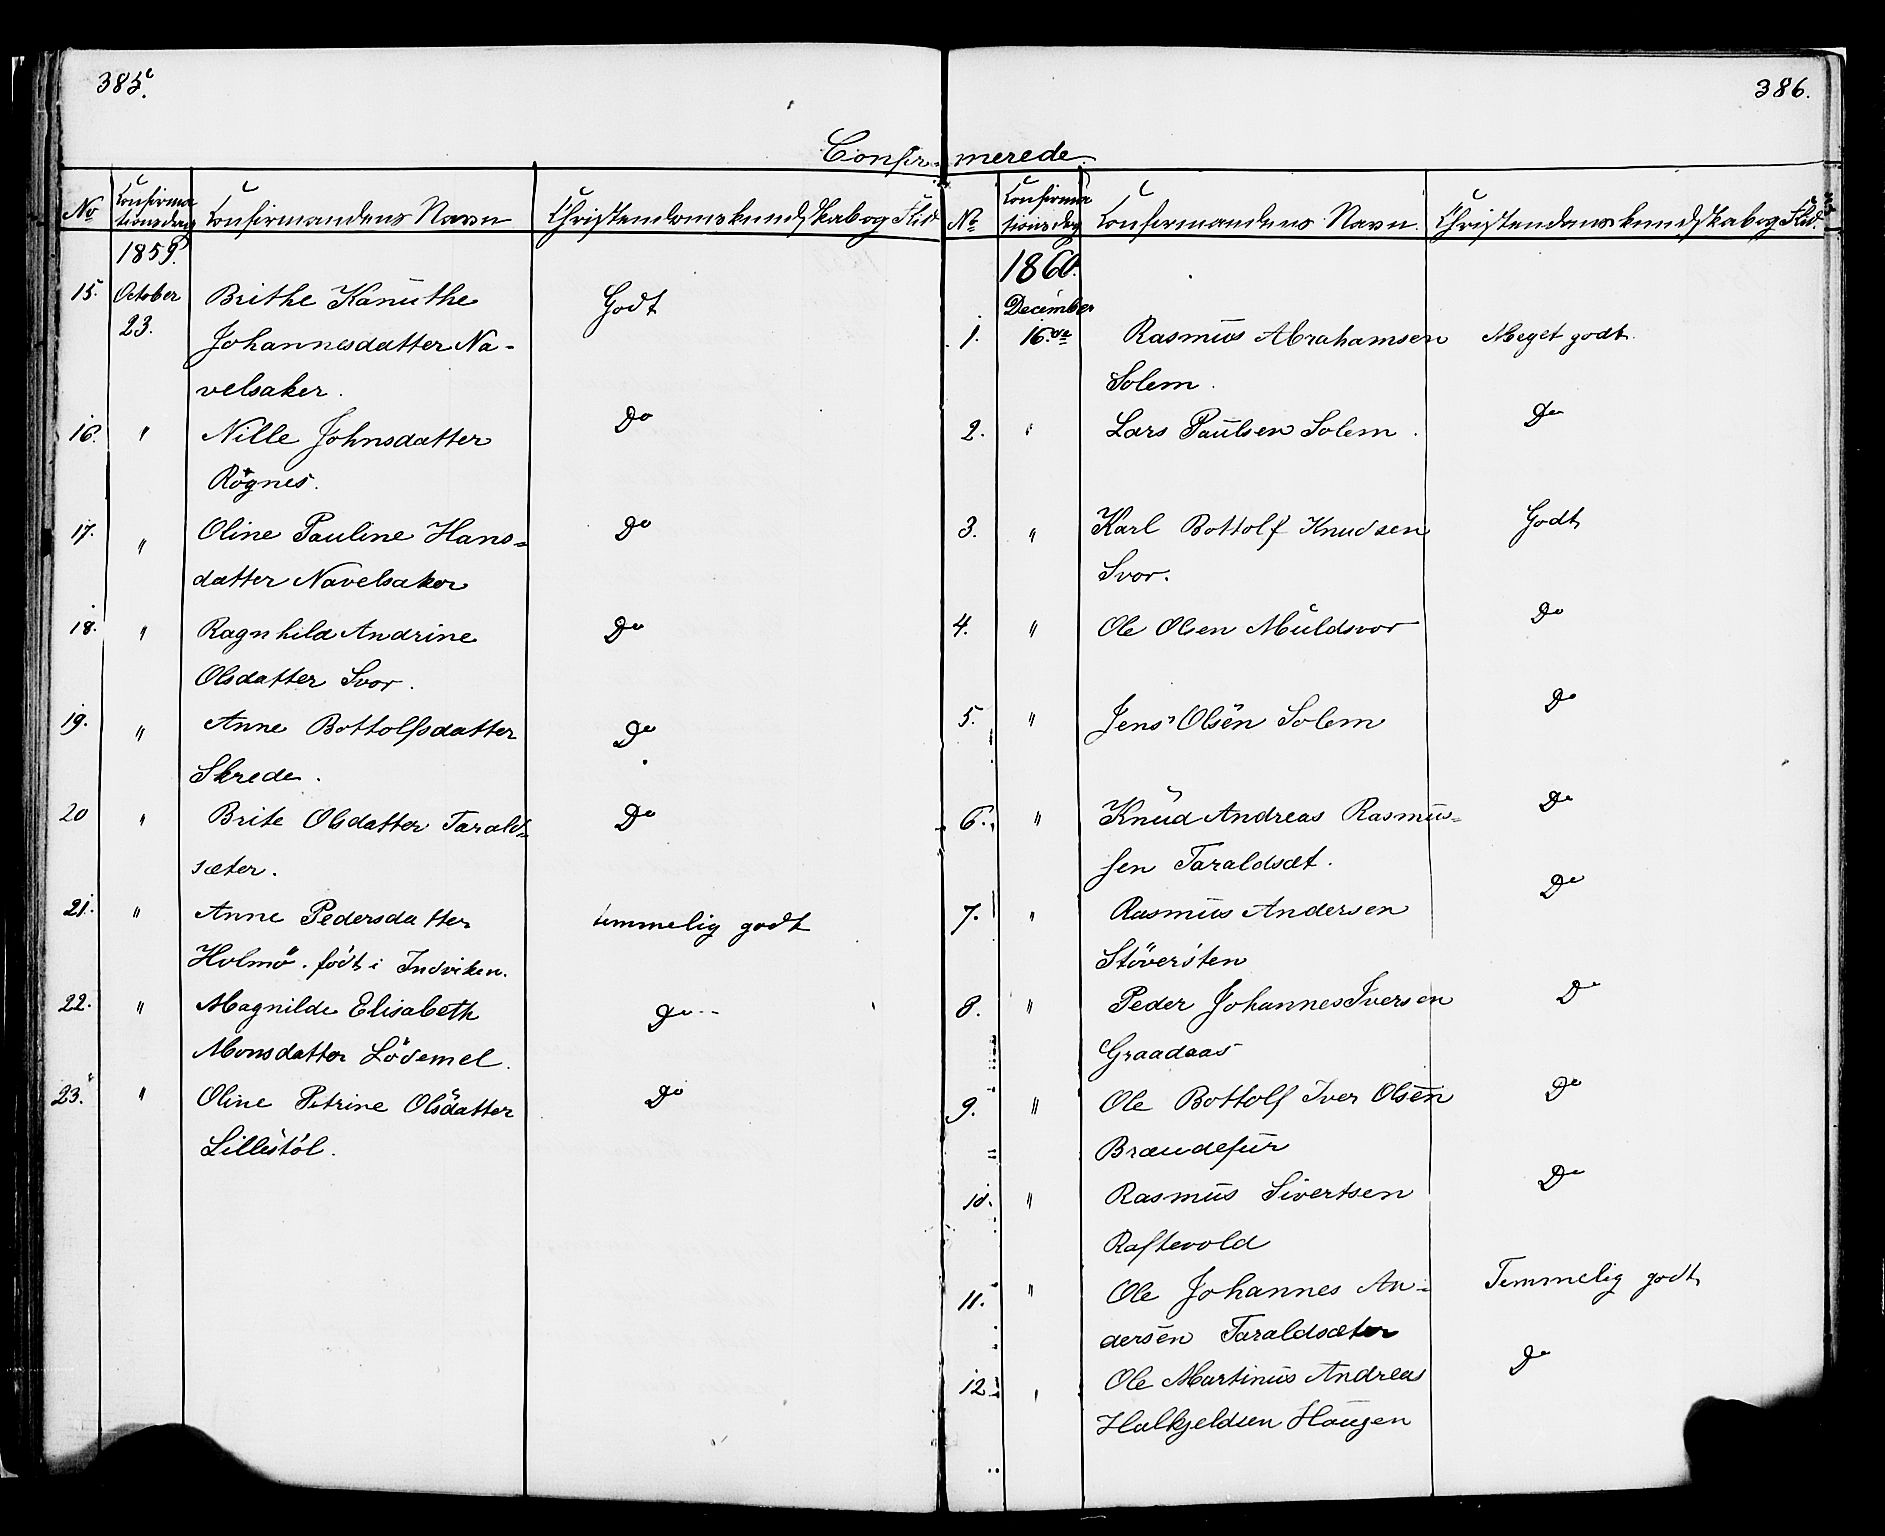 385.
386.
Confir- merede.
No Confirma Confirmandens Navn Christendomskundskab og Flid
tionsdag
1859.
15. October Brithe Kanuthe Godt
23. Johannesdatter Na-
velsaker.
16. " Nille Johnsdatter Do
Røgnes.
17. " Oline Pauline Hans- Do
datter Navelsaker
18. " Ragnhild Andrine Do
Olsdatter Svor.
19. " Anne Bottolfsdatter Do
Skrede.
20 " Brite Olsdatter Tarald- Do
sæter.
21. " Anne Pedersdatter temmelig godt
Holmö. födt i Indviken.
22. " Magnilde Elisabeth Do
Monsdatter Lödemel.
23. " Oline Petrine Olsdatter Do
Lillestöl.
No Confirma Confirmandens Navn. Christendomskundskab og Flid.
tionsdag
1860.
December
1. 16de Rasmus Abrahamsen Meget godt.
Solem.
2. " Lars Paulsen Solem. Do
3. " Karl Bottolf Knudsen Godt
Svor.
4. " Ole Olsen Muldsvor Do
5. " Jens Olsen Solem Do
6. " Knud Andreas Rasmus- Do
sen Taraldsæt.
7. " Rasmus Andersen Do
Stöversten
8. " Peder Johannes Iversen Do
Graadaas
9. " Ole Bottolf Iver Olsen Do
Brændefur
10. " Rasmus Sivertsen Do
Raftevold
11. " Ole Johannes An- Temmelig godt
dersen Taraldsæter
12. " Ole Martinus Andreas Do
Halkjeldsen Haugen